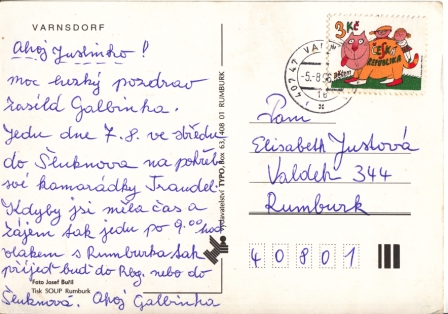 VARNSDORF
Ahoj Justinko!
moc hezký pozdrav
zasílá Galbinka.
Jedu dne 7.8. ve středu
do Šluknova na pohřeb
své kamarádky Traudel.
Kdyby jsi měla čas a
zájem tak jedu po 9.00 hod
vlakem s Rumburka tak
přijeď buď do Rbg. nebo do
Šluknová. Ahoj Galbinka
Foto Josef Buřil
Tisk SOUP Rumburk
Vydavatelství TYPO, Box 63, 408 01 RUMBURK
407 47 VA
-5.-8.96
3 Kč
ČESKÁ
REPUBLIKA
Paní
Elisabeth Justová
Valdek 344
Rumburk
40801